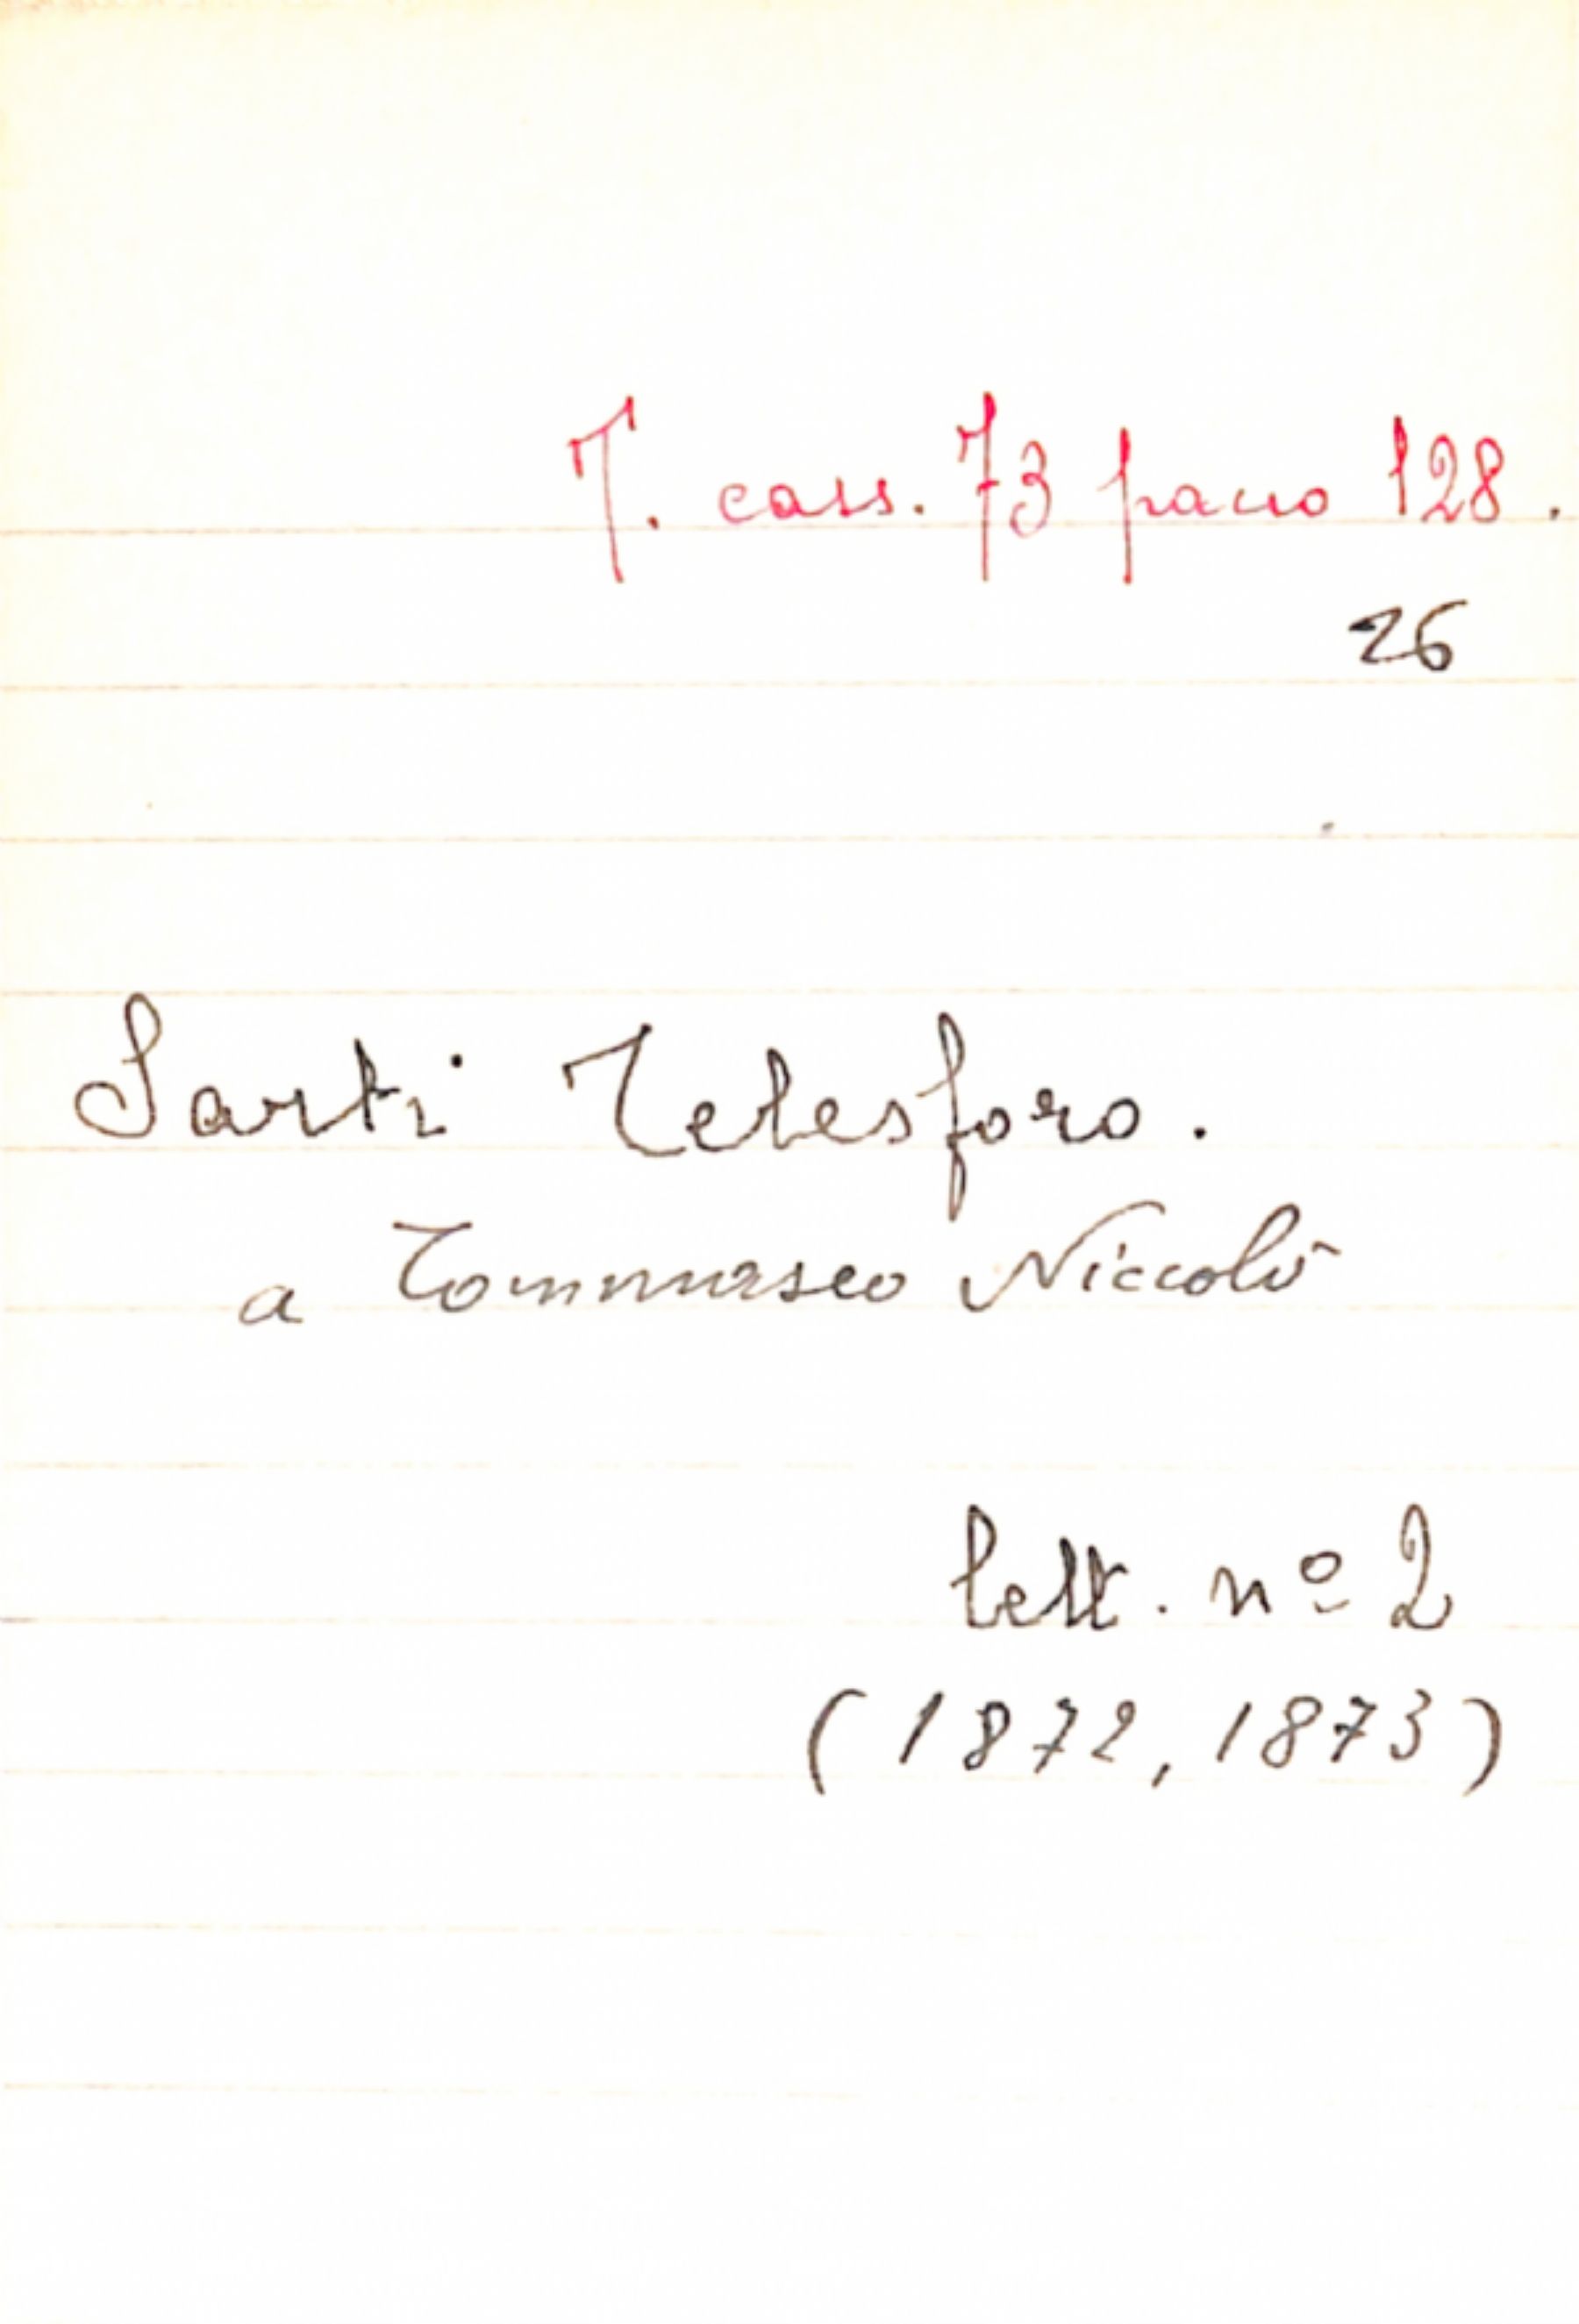 T. cass. 73 pacco 128.
26
Sarti Telesforo.
a Tommaseo Niccolò
lett. nº 2
(1872, 1873)